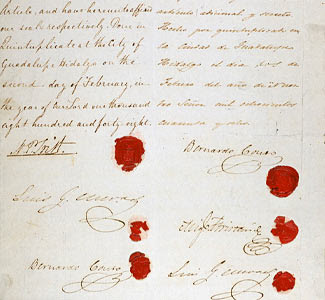 Article, and have hereunto affixed
our seals respectively. Done in
Quintuplicate at the City of
Guadalupe Hidalgo on the
second day of February, in
the year of our Lord one thousand
eight hundred and forty eight.
articulo adicional y secreto
Hecho por quintuplicado en
la ciudad de Guadalupe
Hidalgo el dia dos de
Febrero del año de
Señor mil ochocientos
cuarenta y ocho.
N. P. Trist.
Bernardo Couto
Luis G. Cuevas
Migl Atristain
Bernardo Couto
Luis G. Cuevas